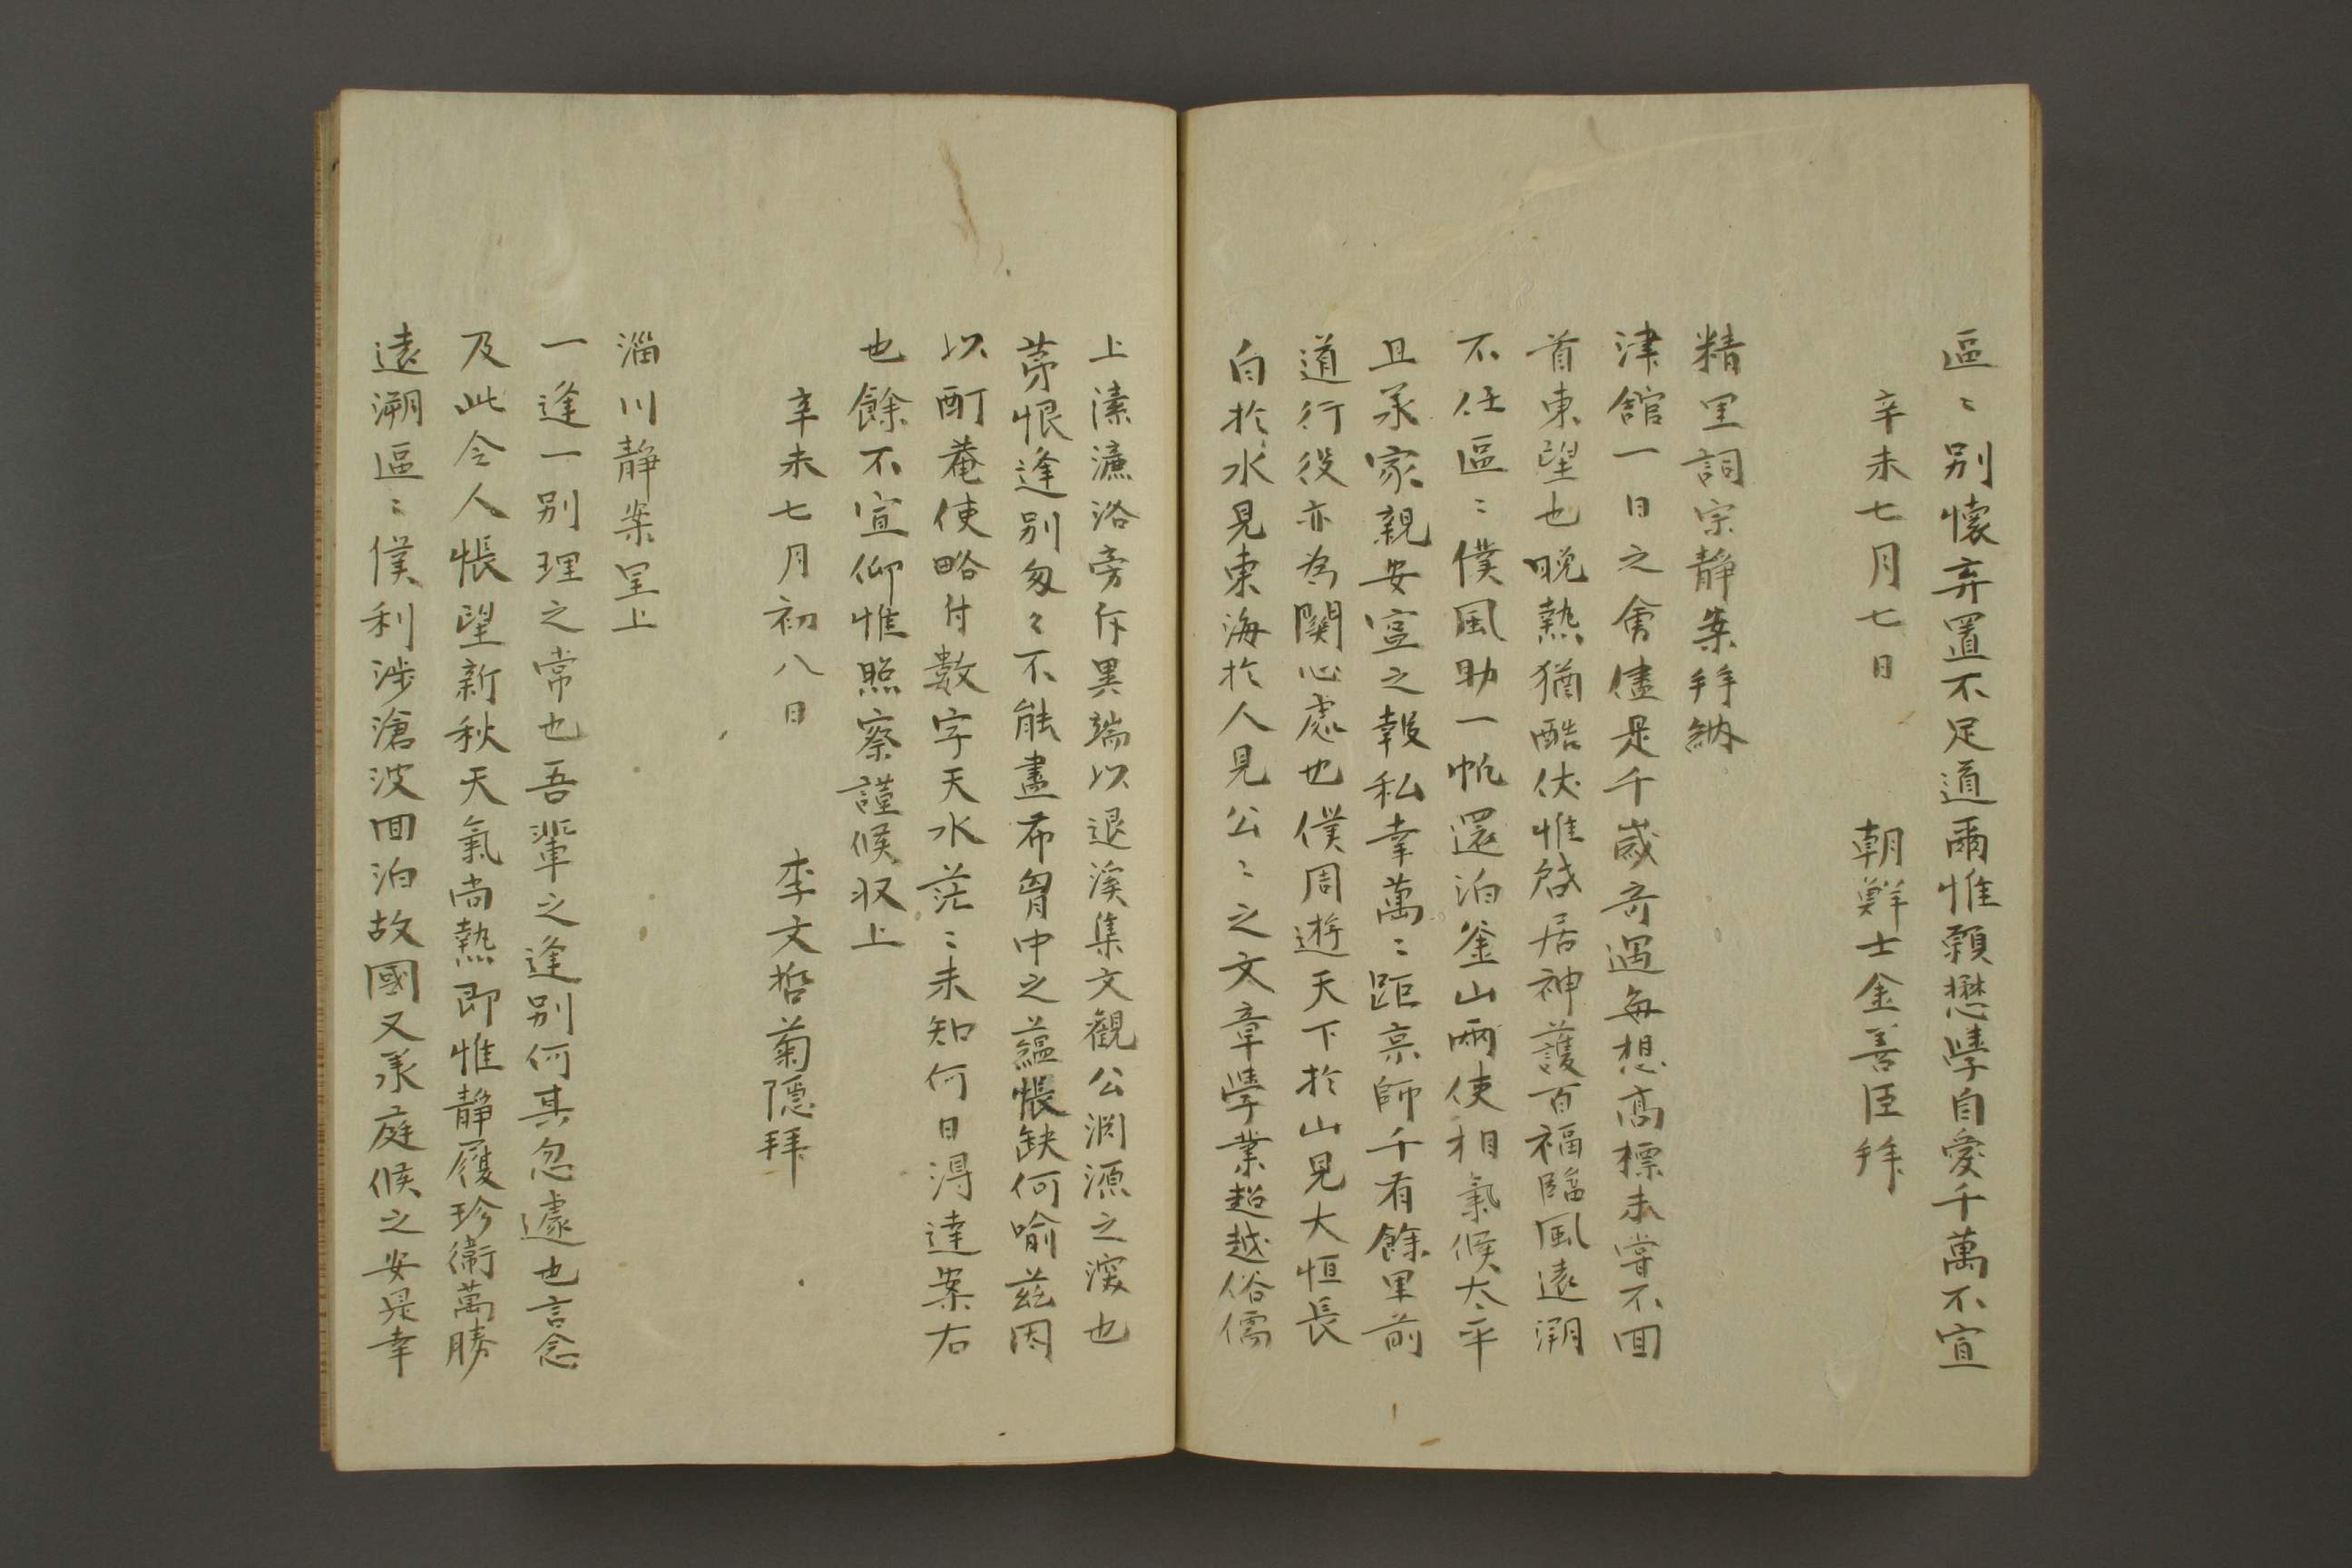 區〻別懷弃置不足道爾惟願懋學自愛千萬不宣
辛未七月七日　朝鮮士金善臣拜
精里詞宗靜案拜納
津館一日之會儘是千歲奇遇每想高標未嘗不回
首東望也晚熱猶酷伏惟啓居神護百福臨風遠溯
不任區〻僕風助一帆還泊釜山兩使相氣候太平
且承家親安寧之報私幸萬〻距京師千有餘里前
道行役亦為關心處也僕周遊天下於山見大恒長
白於水見東海於人見公〻之文章學業超越俗儒
上溱濂洛旁斥異端以退溪集文觀公淵源之深也
第恨逢別匆〻不能盡布胷中之蘊悵缺何喻茲因
以酊菴使略付數字天水茫〻未知何日淂達案右
也餘不宣仰惟照察謹候収上
辛未七月初八日　李文哲菊隱拜
淄川靜案呈上
一逢一別理之常也吾輩之逢別何其忽遽也言念
及此令人悵望新秋天氣尚熱即惟靜履珍衛萬勝
遠溯區〻僕利涉滄波回泊故國又承庭候之安是幸